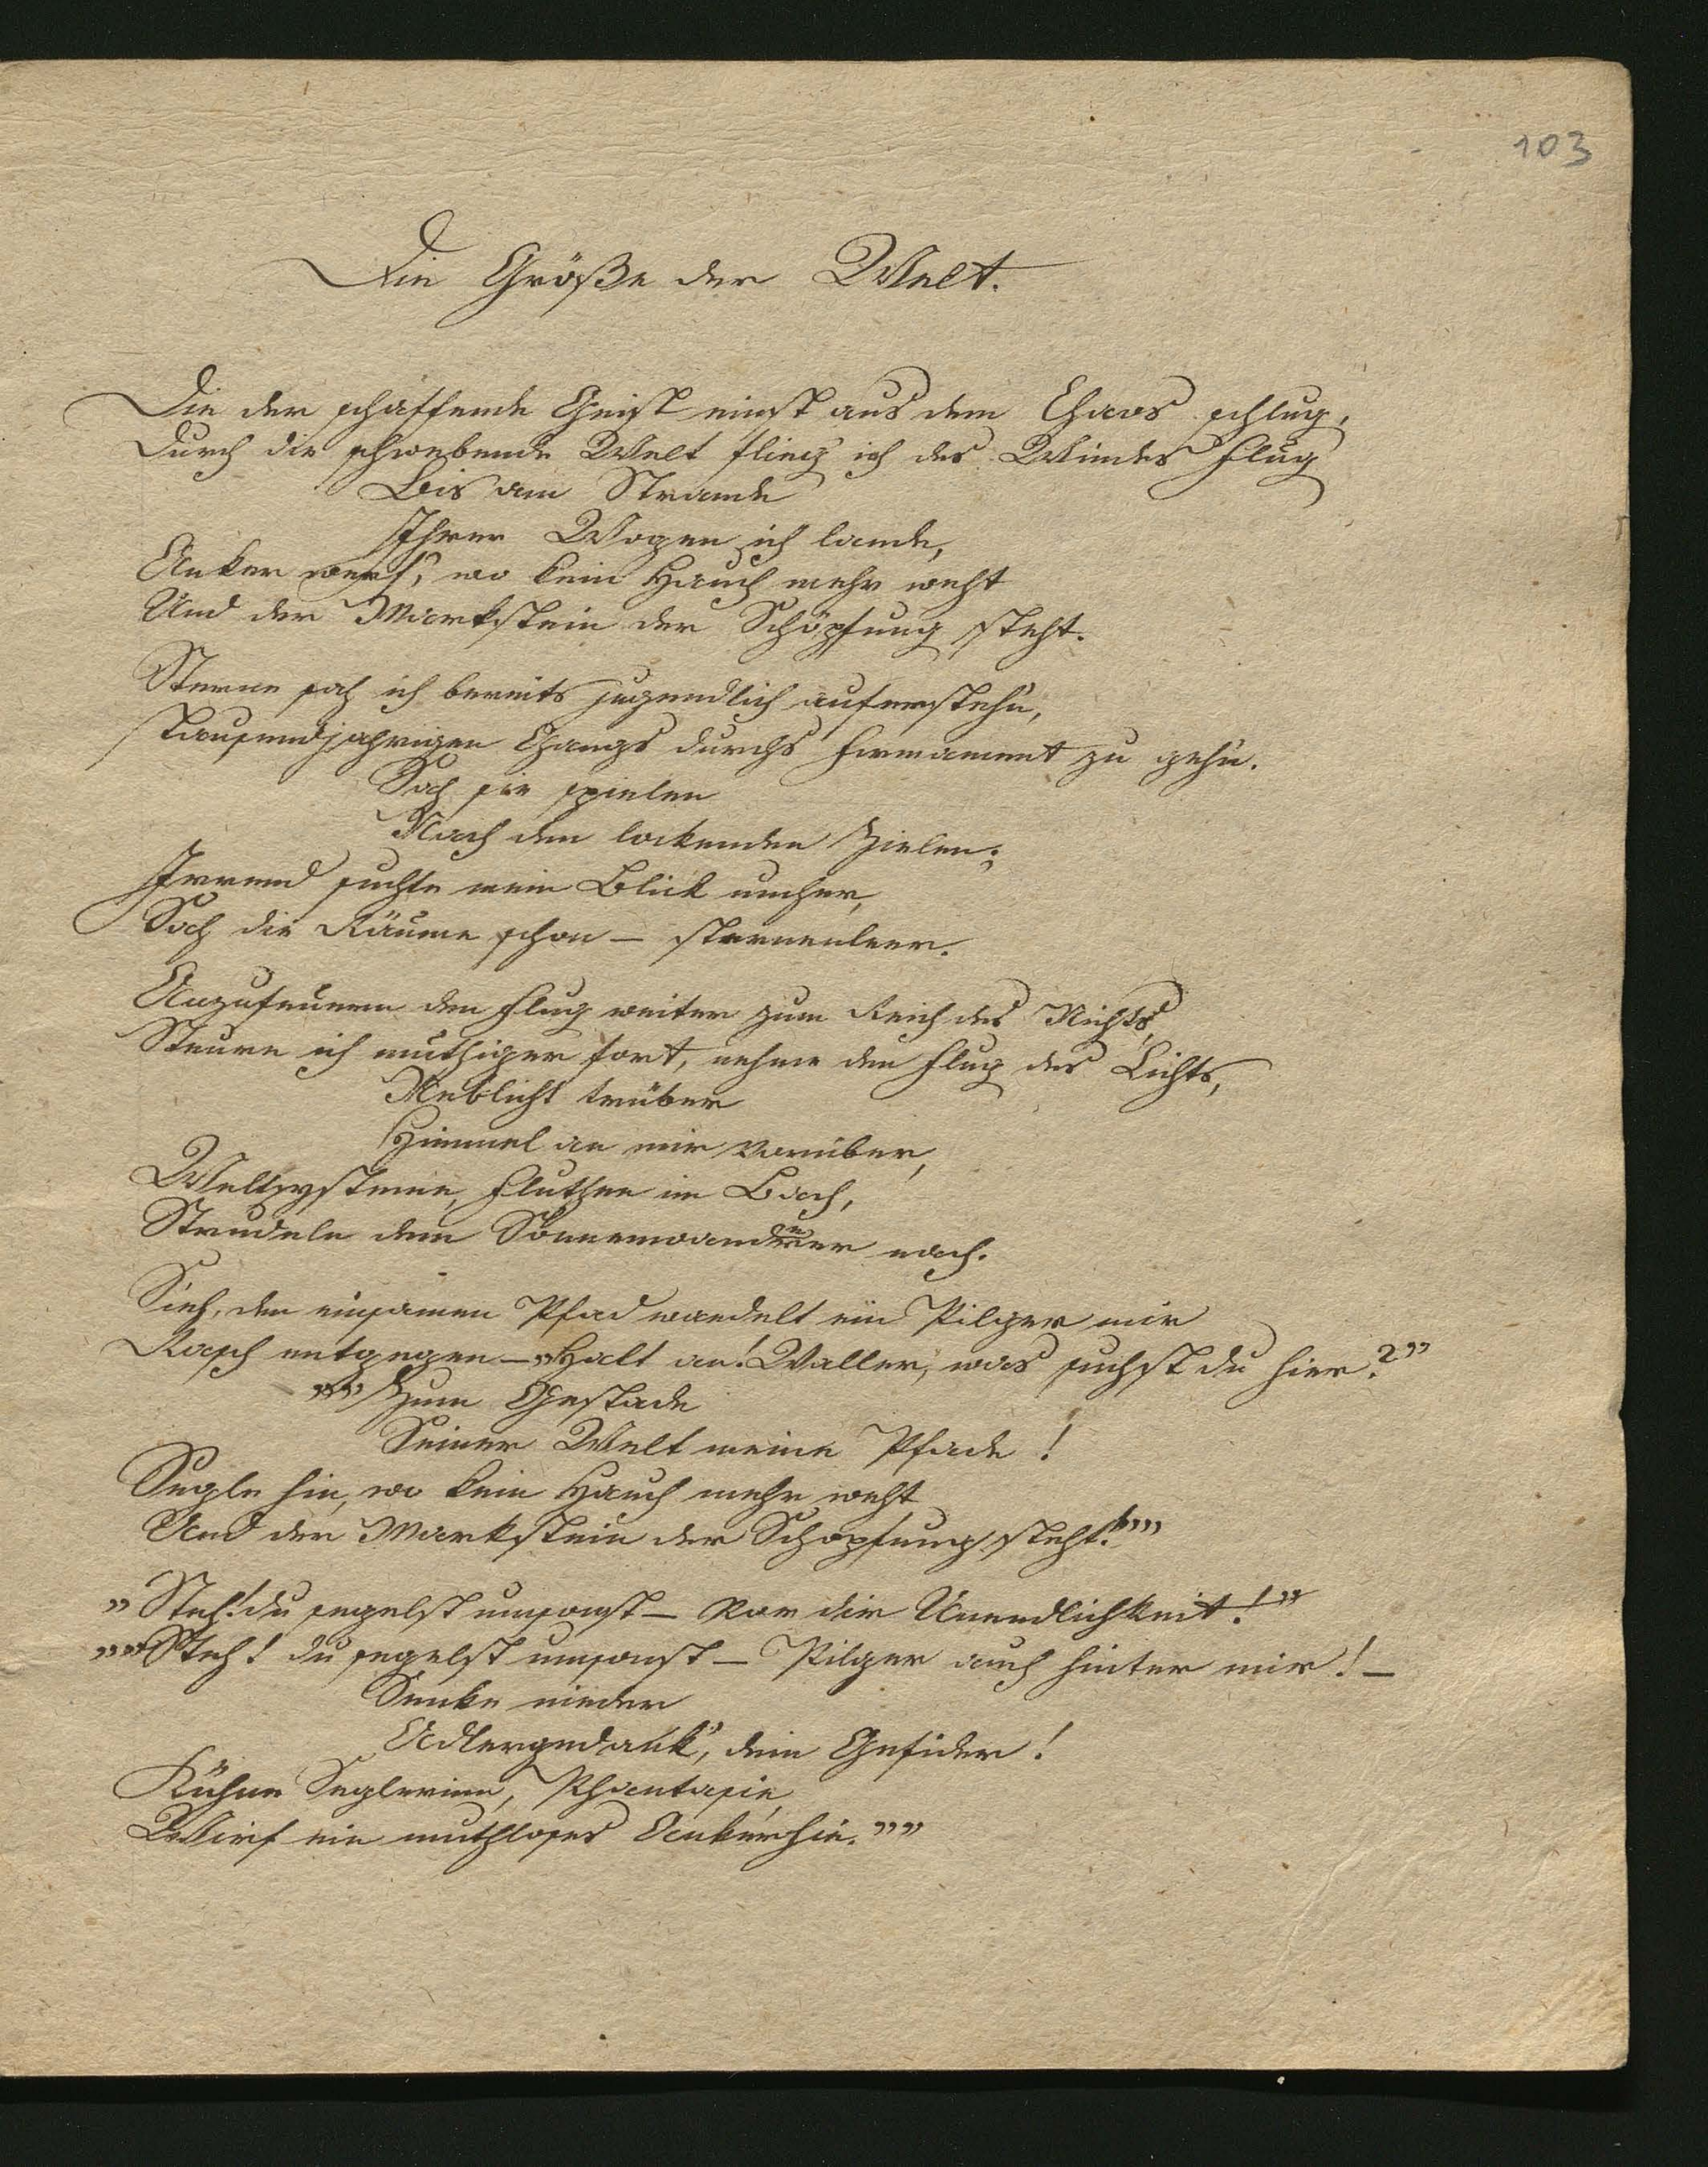 103
Die Größe der Welt.
Die der schaffende Geist einst aus dem Chaos schlug,
Durch die schwebende Welt flieg' ich des Windes Flug
Bis am Strande
Ihrer Wogen ich lande,
Anker werf', wo kein Hauch mehr weht
Und der Markstein der Schöpfung steht.
Sterne sah ich bereits jugendlich auferstehn,
Tausendjährigen Gangs durchs Firmament zu gehn.
Sah sie spielen
Nach den lockenden Zielen;
Irrend suchte mein Blick umher,
Sah die Räume schon – sternenleer.
Anzufeuern den Flug weiter zum Reich des Nichts,
Steure ich muthiger fort, nehme den Flug des Lichts,
Neblicht trüber
Himmel an mir vorüber,
Weltsysteme, Fluthen im Bach,
Strudeln dem Sonnenwanderer nach.
Sieh, den einsamen Pfad wandelt ein Pilger mir
Rasch entgegen – „Halt an! Waller, was suchst du hier?”
„„Zum Gestade
Seiner Welt meine Pfade!
Segle hin, wo kein Hauch mehr weht
Und der Markstein der Schöpfung steht!””
„Steh! du segelst umsonst – Vor dir Unendlichkeit!”
„„Steh! du segelst umsonst – Pilger auch hinter mir! –
Senke nieder
Adlergedank', dein Gefider!
Kühne Seglerinn, Phantasie,
Wirf ein muthloses Anker hie.””